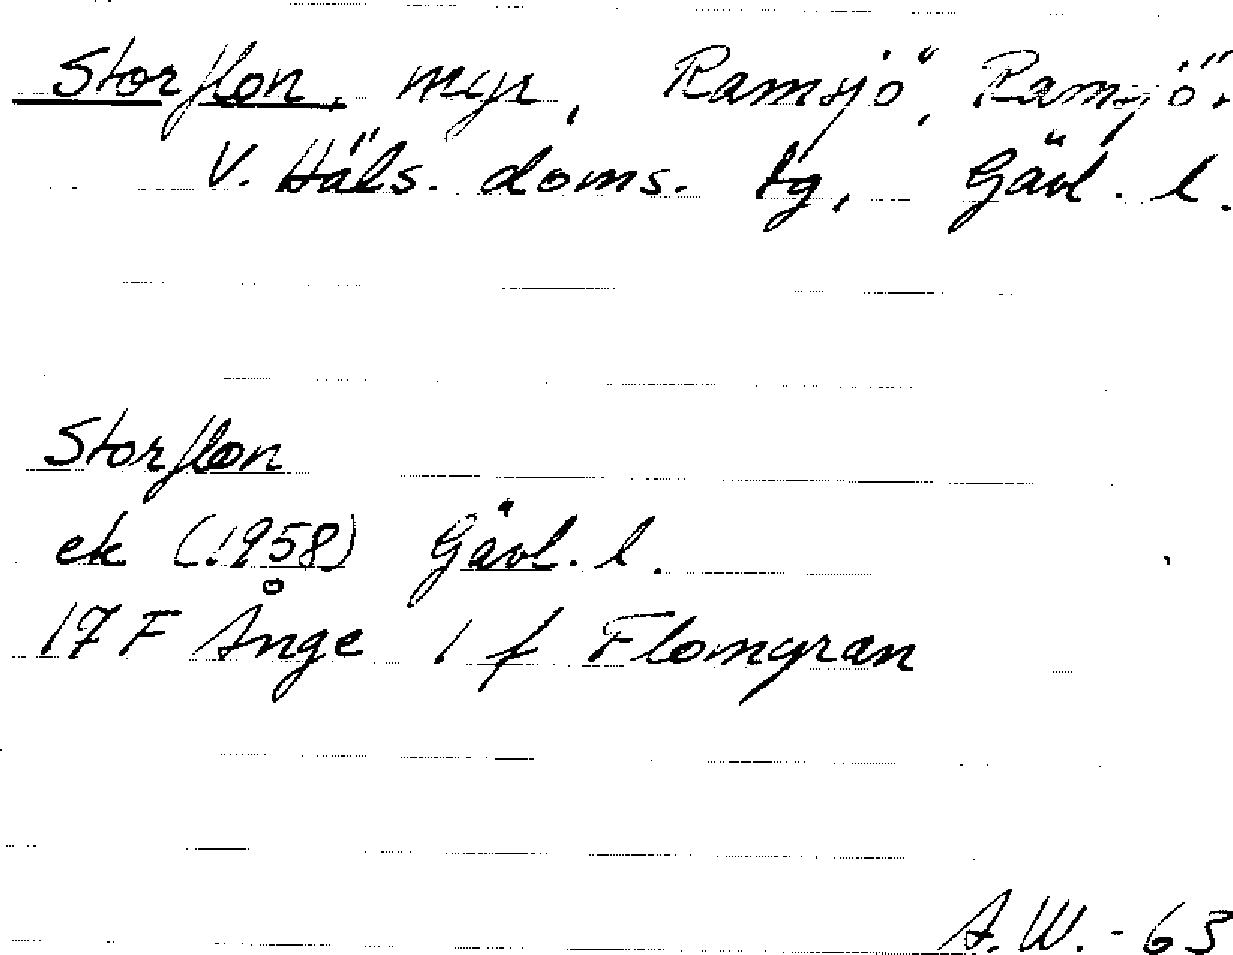 Storflon, myr, Ramsjö, Ramsjö.
V. Häls. doms. tg, Gävl. l.
Storflon
ek (1958) Gävl. l.
17 F Ånge 1 f Flomyran
A.W. - 63